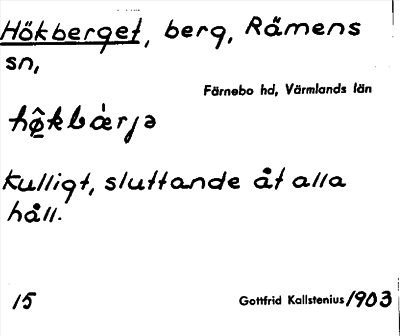 Hökberget, berg, Rämens
sn,
Färnebo hd, Värmlands län
Kulligt, sluttande åt alla
håll.
15
Gottfrid Kallstenius 1903